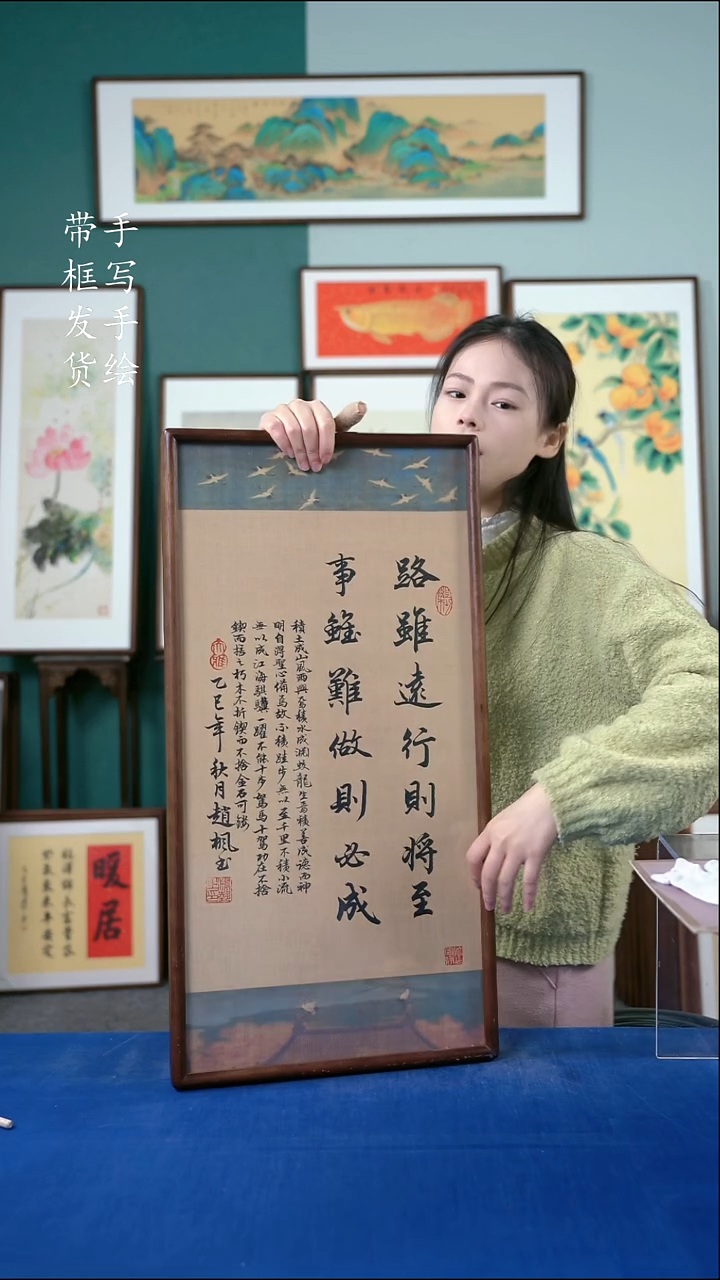 手写手绘
带框发货
路雖遠行則将至
事雖難做則必成
積土成山風雨興焉積水成淵蛟龍生焉積善成德而神
明自得聖心備焉故不積跬步无以至千里不積小流
无以成江海騏驥一躍不能十步駑馬十駕功在不捨
鍥而捨之朽木不折鍥而不捨金石可鏤
乙巳年秋月趙楓书
暖居